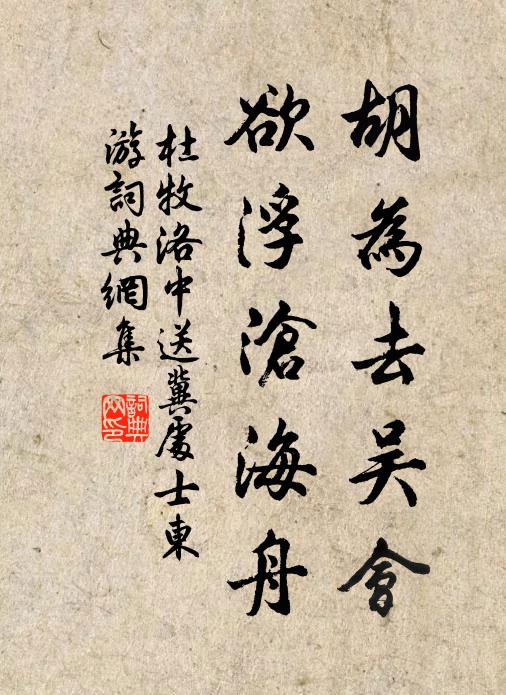 胡為去吳會
欲浮滄海舟
杜牧洛中送冀處士東
游詞典網集
詞典網印